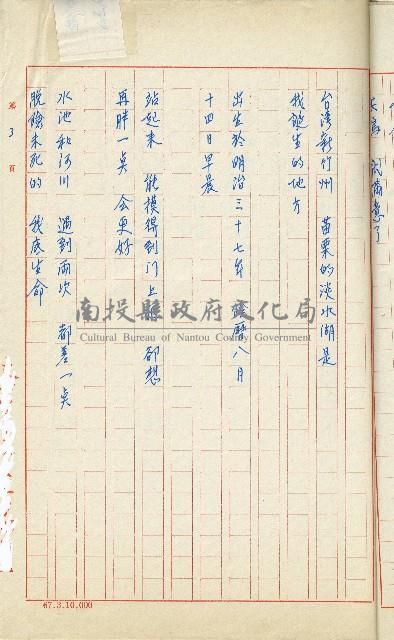 台湾新竹州　苗栗的淡水湖是
我誕生的地方
出生於明治三十七年　農曆八月
十四日早晨
站起來　能摸得到门上　卻想
再胖一点　会更好
水池和河川　遇到兩次　都差一点
脫險未死的　我底生命
第3頁
南投縣政府文化局
Cultural Bureau of Nantou County Government
67.3.10,000